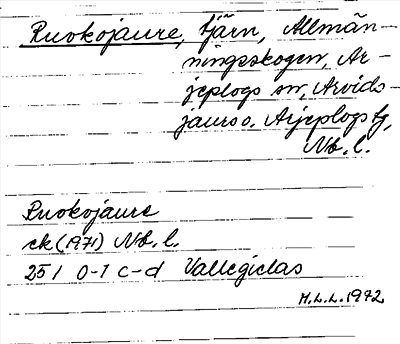 Ruokojaure, tjärn, Allmän-
ningsskogen, Ar-
jeplogs sn, Arvids-
jaurs o, Arjeplogs tg,
Nb. l.
Ruokojaure
ek (1971) Nb. l.
25 I 0-1 c-d Vallegielas
H.L.L. 1972